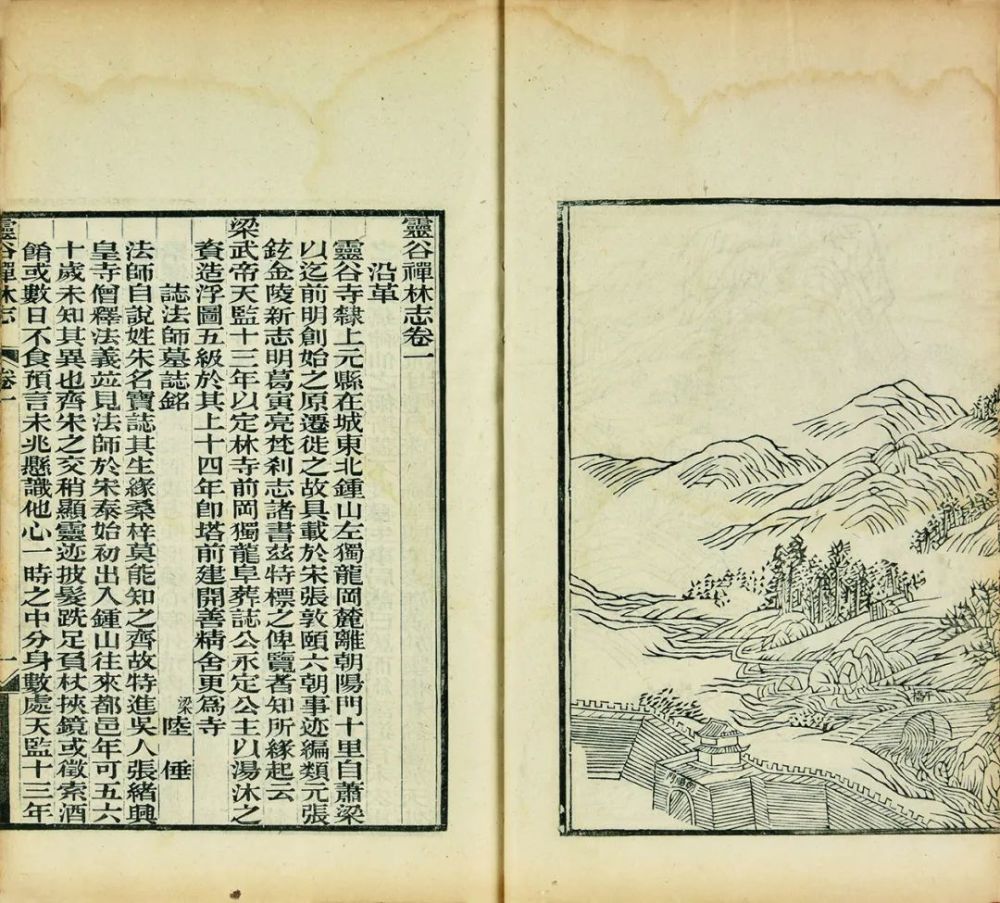 靈谷禪林志卷一
沿革
靈谷寺隸上元縣在城東北鍾山左獨龍岡麓離朝陽門十里自蕭梁
以迄前明創始之原遷徙之故具載於宋張敦頤六朝事迹編類元張
鉉金陵新志明葛寅亮梵刹志諸書茲特標之俾覽者知所緣起云
梁武帝天監十三年以定林寺前岡獨龍阜葬誌公永定公主以湯沐之
資造浮圖五級於其上十四年卽塔前建開善精舍更爲寺
誌法師墓誌銘 梁 陸 倕
法師自說姓朱名寶誌其生緣桑梓莫能知之齊故特進吳人張緒興
皇寺僧釋法義竝見法師於宋泰始初出入鍾山往來都邑年可五六
十歲未知其異也齊宋之交稍顯靈迹披髮跣足負杖挾鏡或徵索酒
餚或數日不食預言未兆懸識他心一時之中分身數處天監十三年
靈谷禪林志 卷一 一